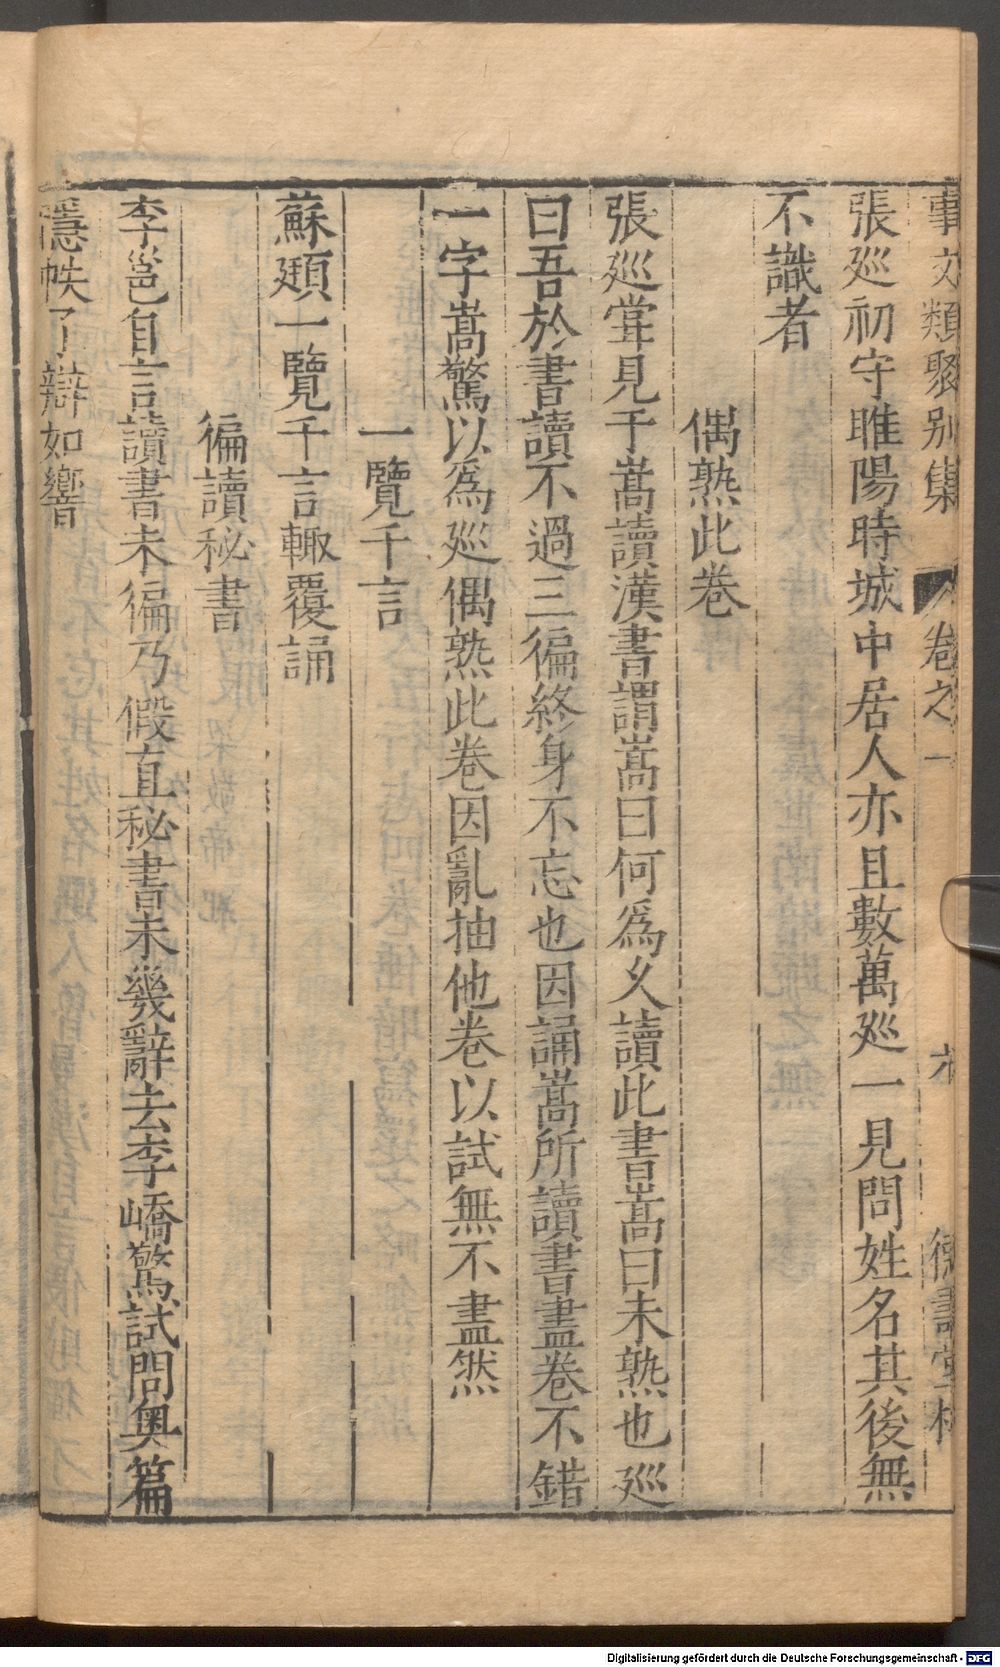 事文類聚别集 卷之一 德壽堂梓
張廵初守睢陽時城中居人亦且數萬廵一見問姓名其後無
不識者
偶熟此卷
張廵甞見于嵩讀漢書謂嵩曰何爲乆讀此書嵩曰未熟也廵
曰吾於書讀不過三徧終身不忘也因誦嵩所讀書盡卷不錯
一字嵩驚以爲廵偶熟此卷因亂抽他卷以試無不盡然
一覽千言
蘇頲一覽千言輙覆誦
徧讀秘書
李邕自言讀書未徧乃假直秘書未幾辭去李嶠驚試問奥篇
隱帙了辯如響
Digitalisierung gefördert durch die Deutsche Forschungsgemeinschaft - DFG